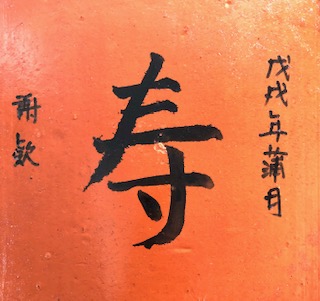 戊戌年蒲月
寿
谢欽